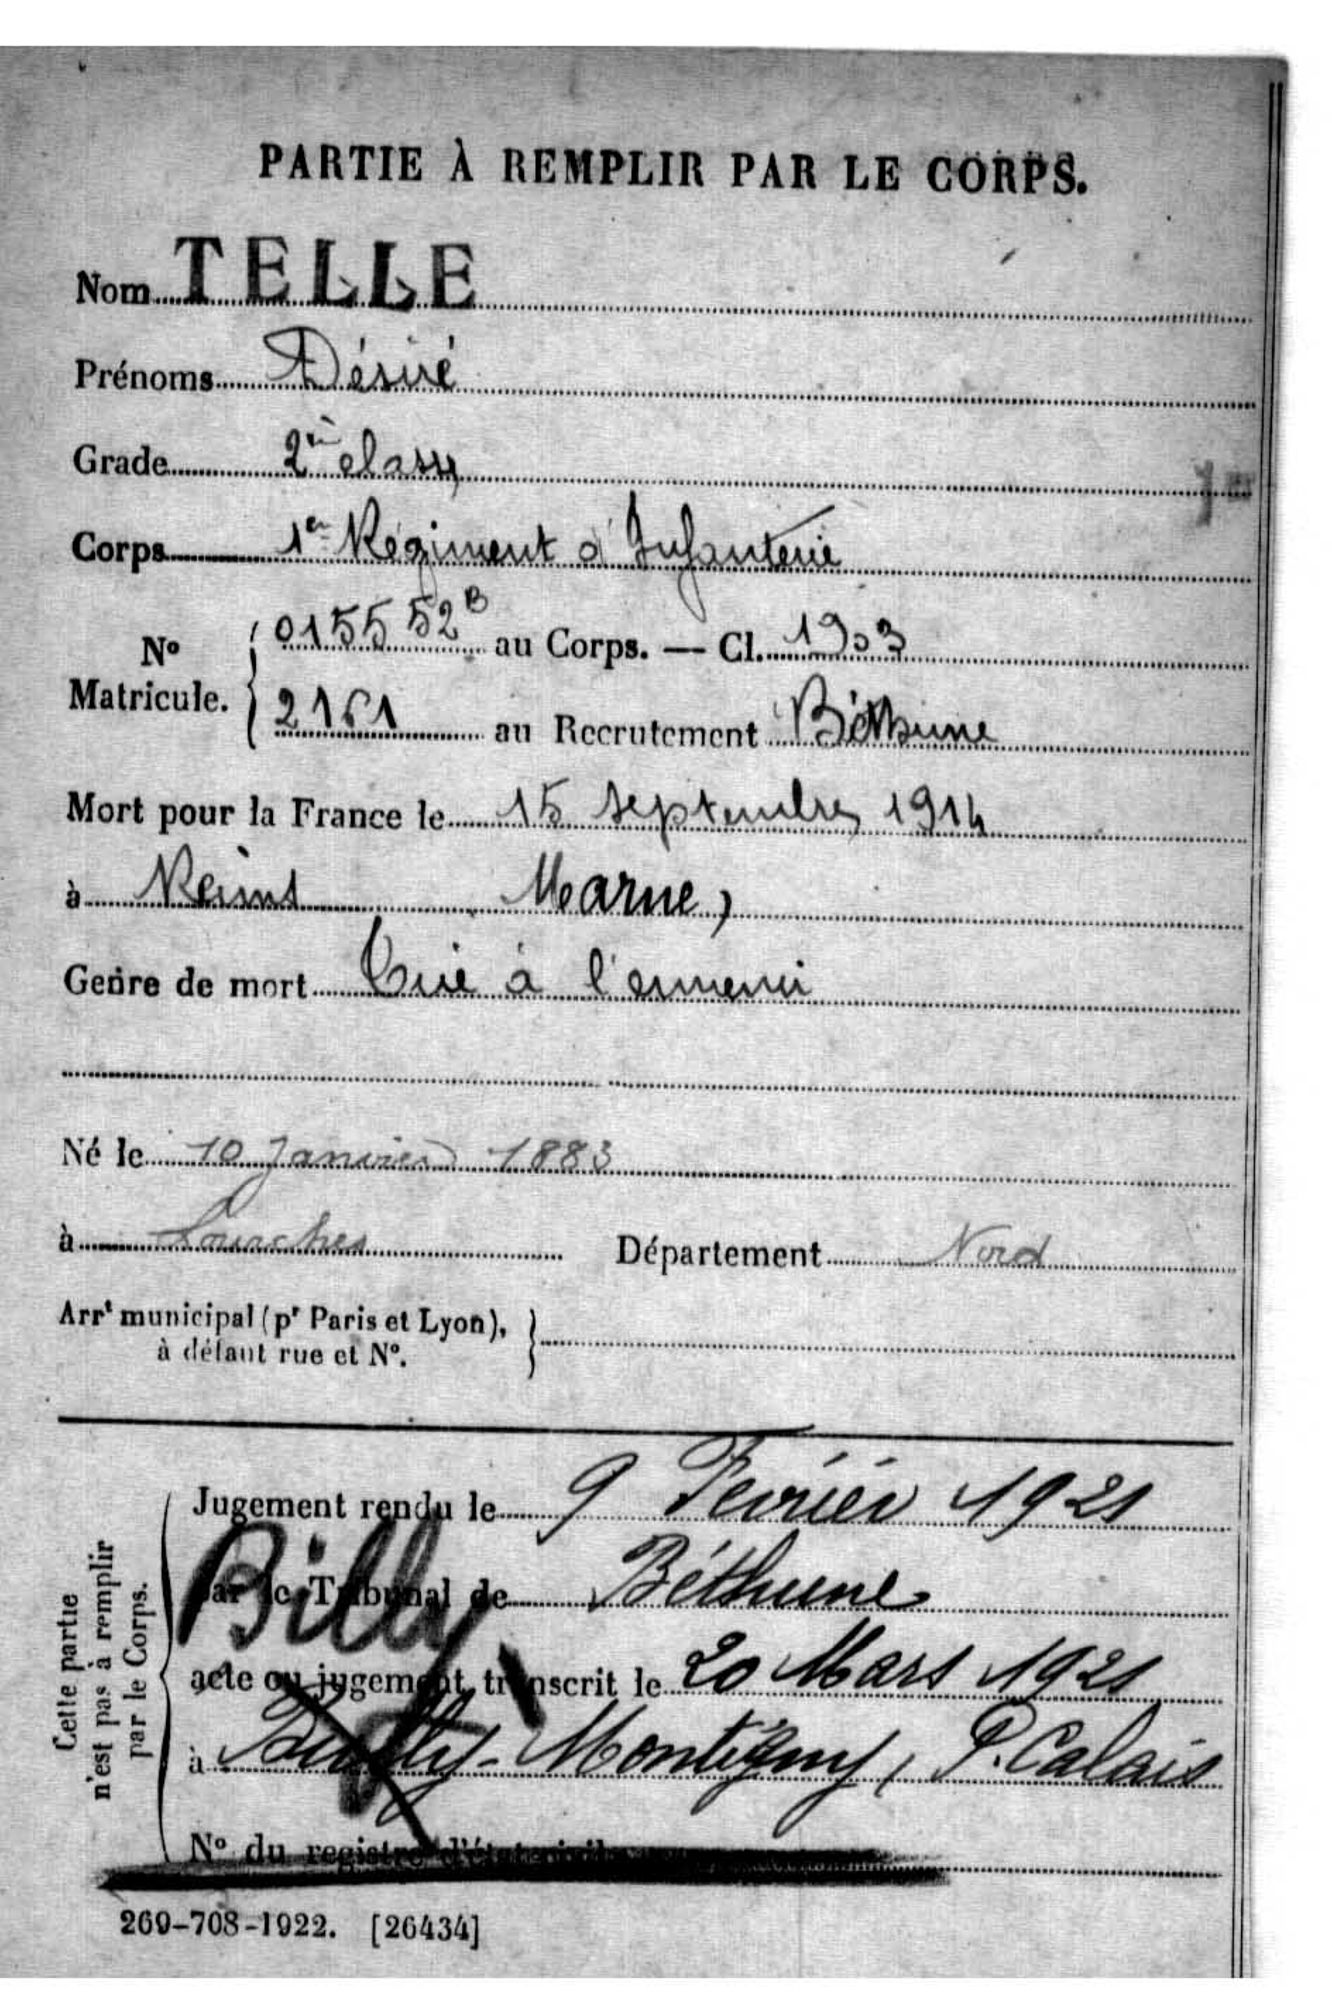 PARTIE À REMPLIR PAR LE CORPS.
Nom TELLE
Prénoms Désiré
Grade 2me classe
Corps 1er Régiment d'Infanterie
No Matricule. 015552B au Corps. — Cl. 1903
2161 au Recrutement Béthune
Mort pour la France le 15 septembre 1914
à Reims Marne,
Genre de mort Tué à l'ennemi
Né le 10 Janvier 1883
à Lourches Département Nord
Arrt municipal (pr Paris et Lyon),
à défaut rue et No.
Cette partie
n'est pas à remplir
par le Corps.
Jugement rendu le 9 Février 1921
par le Tribunal de Béthune
Billy
acte ou jugement transcrit le 20 Mars 1921
à Montigny, P. Calais
No du registre d'état civil
269-708-1922. [26434]